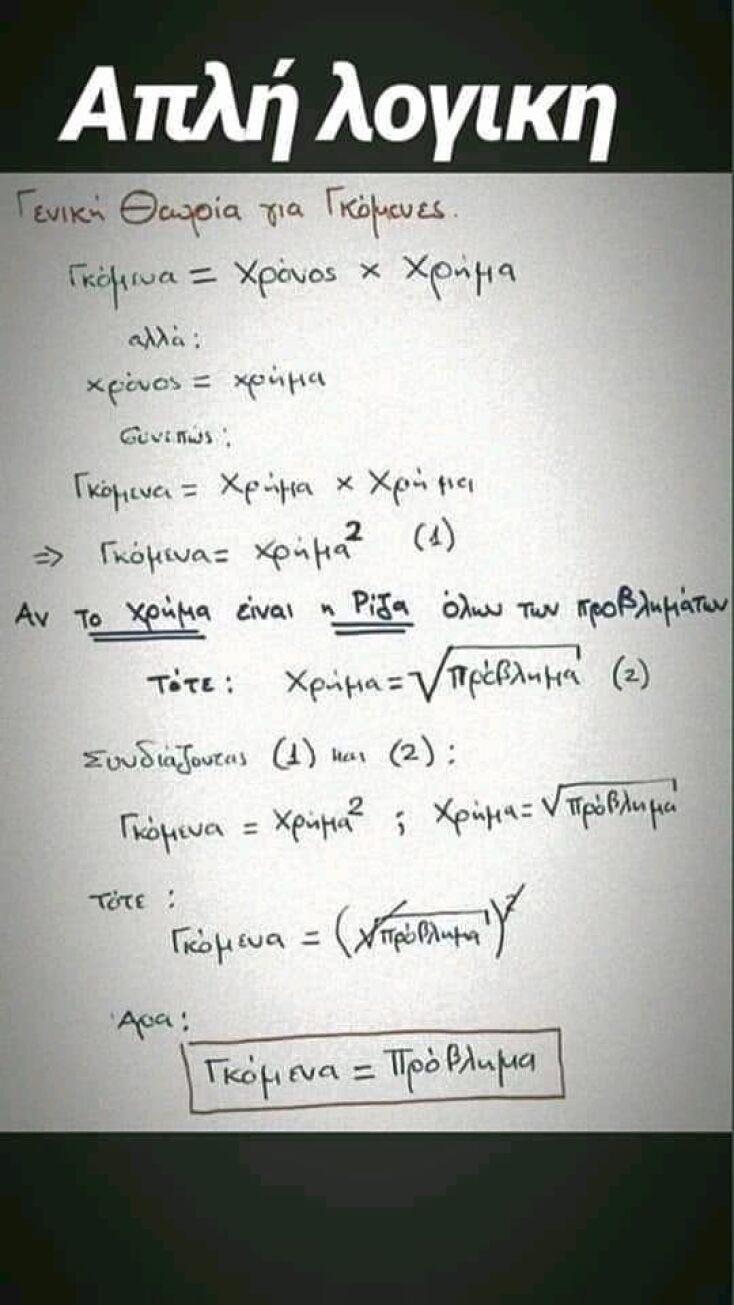 Απλή λογικη
Γενική Θεωρία για Γκόμενες.
Γκόμενα = Χρόνος × Χρήμα
αλλά:
χρόνος = χρήμα
Συνεπώς:
Γκόμενα = Χρήμα × Χρήμα
⇒ Γκόμενα = χρήμα² (1)
Αν το χρήμα είναι η Ρίζα όλων των προβλημάτων
Τότε: Χρήμα = √πρόβλημα (2)
Συνδιάζοντας (1) και (2):
Γκόμενα = Χρήμα² ; Χρήμα = √πρόβλημα
Τότε:
Γκόμενα = (√πρόβλημα)²
Άρα:
Γκόμενα = Πρόβλημα